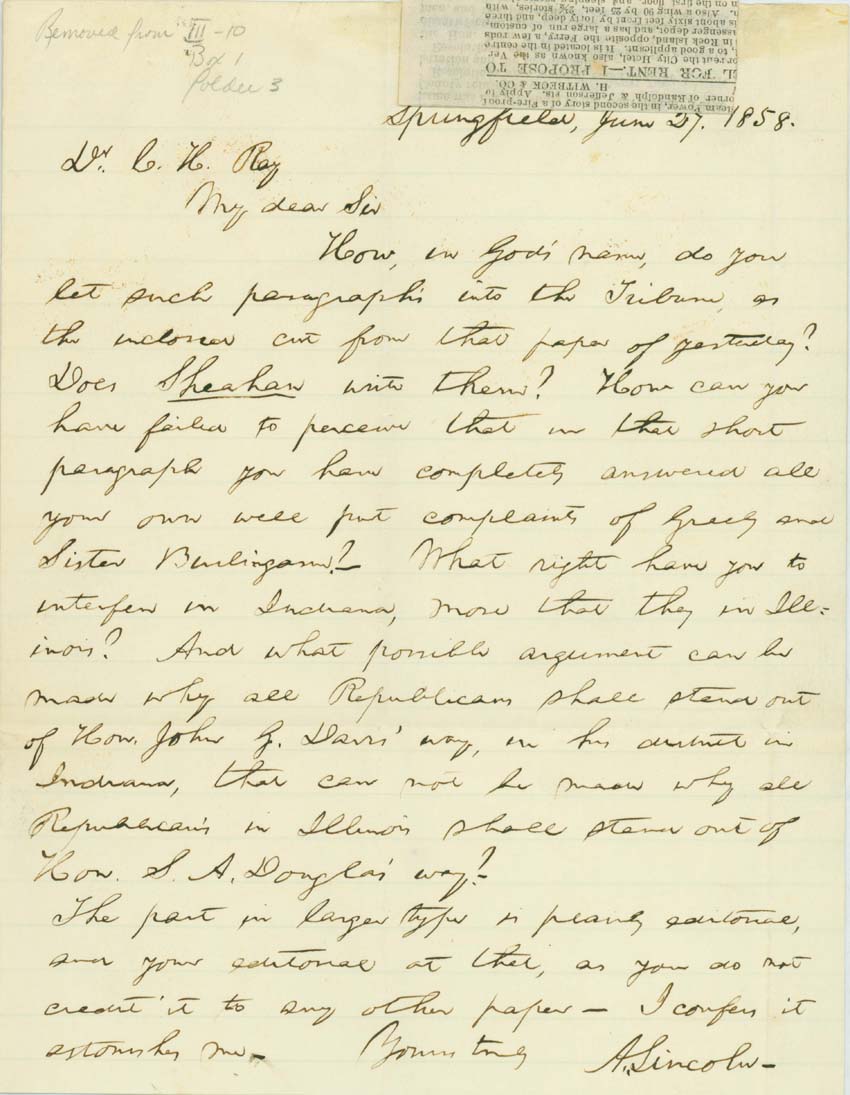 Removed from III-10
Box 1
folder 3
Steam Power, in the second story of a Fire-proof
corner of Randolph & Jefferson sts. Apply to
H. WITBECK & CO.
L FOR RENT.—I PROPOSE TO
or rent the City Hotel, also known as the
, to a good applicant. It is located in the centre
in Rock Island, opposite the Ferry, a few rods
passenger depot, and has a large run of custom,
is about sixty feet front by forty deep, and three
Also a wing 90 by 25 feet, 2½ stories, with
on the first floor, and sleeping
Springfield, June 27. 1858.
Dr. C. H. Ray
My dear Sir
How, in God's name, do you
let such paragraphs into the Tribune, as
the inclosed cut from that paper of yesterday?
Does Sheahan write them? How can you
have failed to perceive that in that short
paragraph you have completely answered all
your own well put complaints of Greely and
Sister Burlingame?– What right have you to
interfere in Indiana, more that they in Ill-
inois? And what possible argument can be
made why all Republicans shall stand out
of Hon. John G. Davis' way, in his district in
Indiana, that can not be made why all
Republicans in Illinois shall stand out of
Hon. S. A. Douglas' way?
The part in larger type is plainly editorial,
and your editorial at that, as you do not
credit it to any other paper– I confess it
astonishes me–
Yours truly
A. Lincoln–